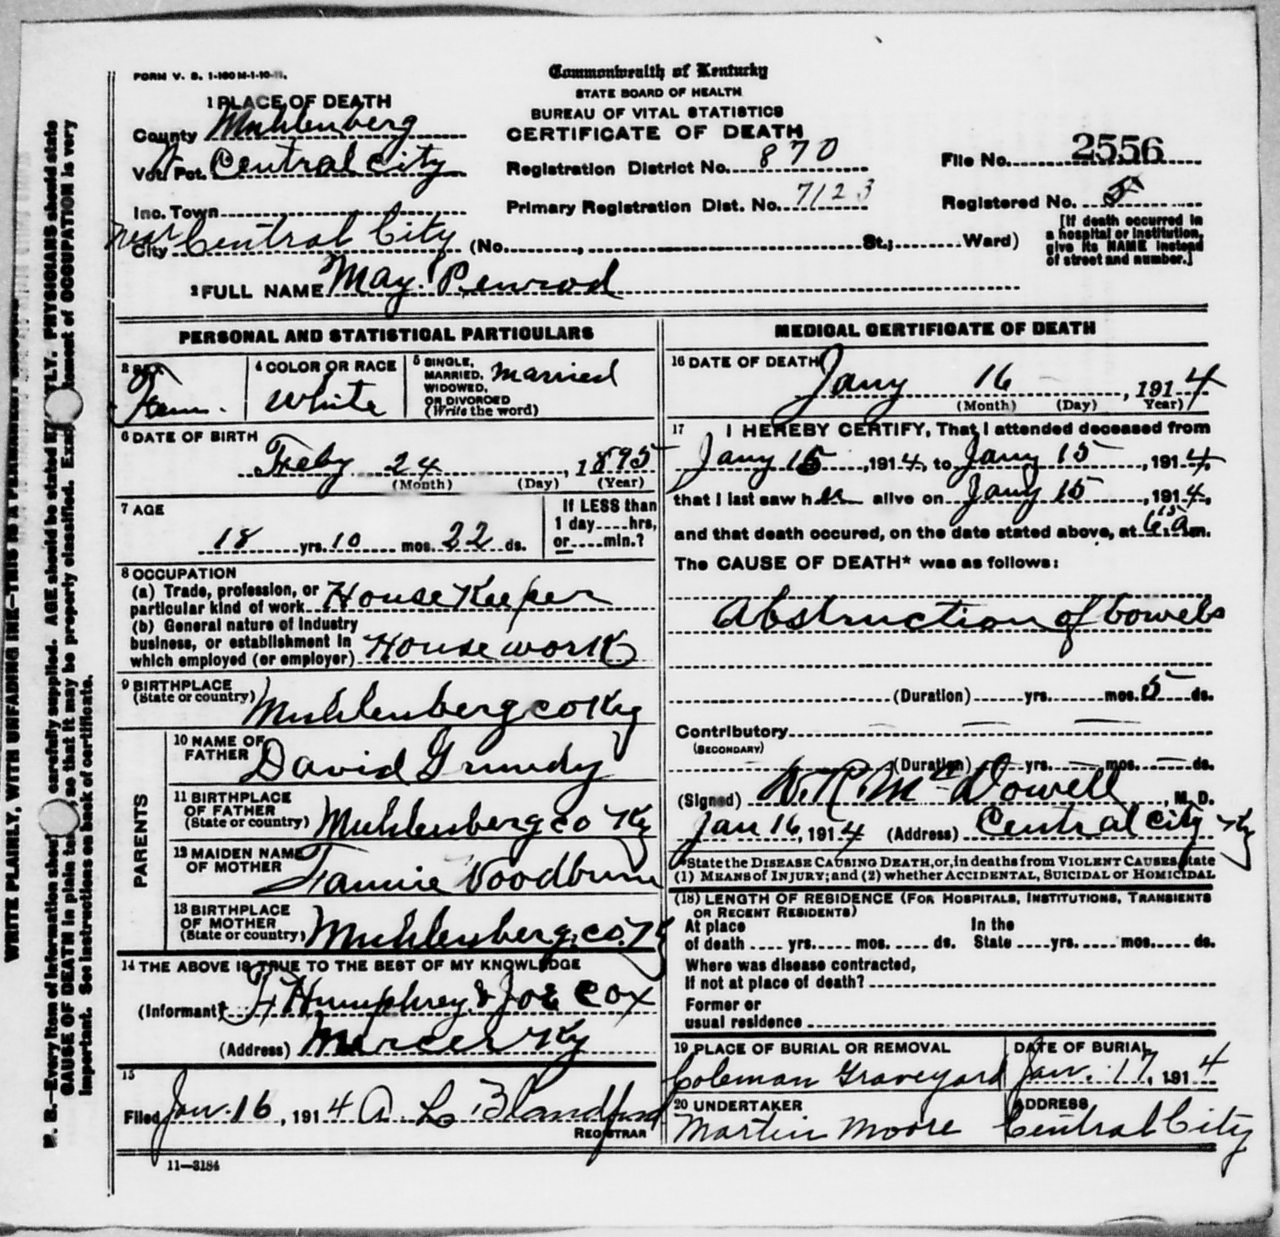 FORM V. S. 1-160 M-1-10-11.
Commonwealth of Kentucky
STATE BOARD OF HEALTH
BUREAU OF VITAL STATISTICS
CERTIFICATE OF DEATH
1 PLACE OF DEATH
County Muhlenberg
Vot. Pct. Central city
Inc. Town
near City Central City (No. , St.; Ward)
Registration District No. 870
Primary Registration Dist. No. 7123
File No. 2556
Registered No. 5
[If death occurred in
a hospital or institution,
give its NAME instead
of street and number.]
2 FULL NAME May Penrod
PERSONAL AND STATISTICAL PARTICULARS
3 SEX
Fem.
4 COLOR OR RACE
White
5 SINGLE,
MARRIED,
WIDOWED,
OR DIVORCED
(Write the word)
Married
6 DATE OF BIRTH
Feby 24, 1895
(Month) (Day) (Year)
7 AGE
18 yrs. 10 mos. 22 ds.
If LESS than
1 day....hrs,
or....min.?
8 OCCUPATION
(a) Trade, profession, or
particular kind of work House Keeper
(b) General nature of industry
business, or establishment in
which employed (or employer) House work
9 BIRTHPLACE
(State or country) Muhlenberg co Ky
PARENTS
10 NAME OF
FATHER David Grundy
11 BIRTHPLACE
OF FATHER
(State or country) Muhlenberg co Ky
12 MAIDEN NAME
OF MOTHER Fannie Woodburn
13 BIRTHPLACE
OF MOTHER
(State or country) Muhlenberg, co. Ky
14 THE ABOVE IS TRUE TO THE BEST OF MY KNOWLEDGE
(Informant) F Humphrey & Joe Cox
(Address) Mercer Ky
15
Filed Jan. 16, 1914 A. L. Blandford
REGISTRAR
11—3184
MEDICAL CERTIFICATE OF DEATH
16 DATE OF DEATH
Jany 16, 1914
(Month) (Day) Year)
17 I HEREBY CERTIFY, That I attended deceased from
Jany 15, 1914, to Jany 15, 1914,
that I last saw her alive on Jany 15, 1914,
and that death occured, on the date stated above, at 6 15 a m.
The CAUSE OF DEATH* was as follows:
Abstruction of bowels
(Duration) yrs. mos. 5 ds.
Contributory
(SECONDARY)
(Duration) yrs. mos. ds.
(Signed) W. R. McDowell, M. D.
Jan 16, 1914 (Address) Central city Ky
*State the DISEASE CAUSING DEATH, or, in deaths from VIOLENT CAUSES, state
(1) MEANS of INJURY; and (2) whether ACCIDENTAL, SUICIDAL or HOMICIDAL
(18) LENGTH OF RESIDENCE (FOR HOSPITALS, INSTITUTIONS, TRANSIENTS
OR RECENT RESIDENTS)
At place In the
of death .... yrs. .... mos. .... ds. State .... yrs. .... mos. .... ds.
Where was disease contracted,
If not at place of death?
Former or
usual residence
19 PLACE OF BURIAL OR REMOVAL
Coleman Graveyard
DATE OF BURIAL
Jan. 17, 1914
20 UNDERTAKER
Martin Moore
ADDRESS
Central City
WRITE PLAINLY, WITH UNFADING INK—THIS IS A PERMANENT
N. B.—Every item of information should carefully supplied. AGE should be stated EXACTLY. PHYSICIANS should state
CAUSE OF DEATH in plain terms, so that it may be properly classified. Exact statement of OCCUPATION is very
important. See instructions on back of certificate.